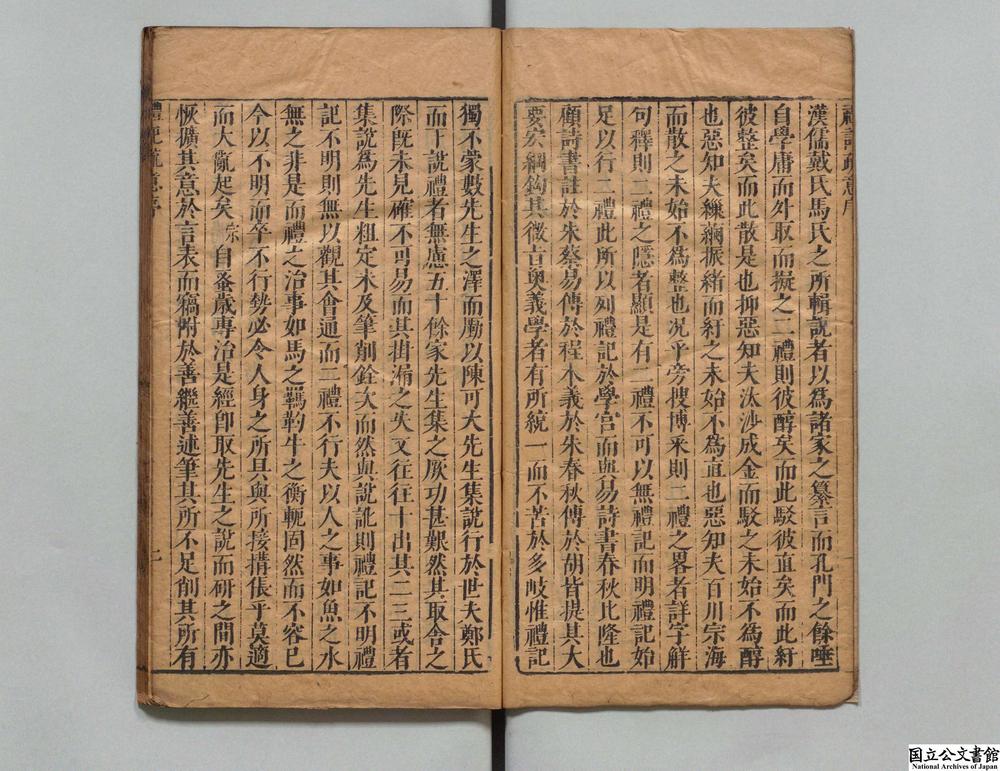 禮記疏意序
漢儒戴氏馬氏之所輯說者以為諸家之纂言而孔門之餘唾
自學庸而外取而擬之二禮則彼醇矣而此駁彼直矣而此紆
彼整矣而此散是也抑惡知夫汰沙成金而駁之未始不為醇
也惡知夫繅綱振緒而紆之未始不為直也惡知夫百川宗海
而散之未始不為整也況乎旁搜博采則二禮之畧者詳字解
句釋則二禮之隱者顯是有二禮不可以無禮記而明禮記始
足以行二禮此所以列禮記於學宮而與易詩書春秋比隆也
顧詩書註於朱蔡易傳於程本義於朱春秋傳於胡皆提其大
要宏綱鈎其微旨奧義學者有所統一而不苦於多岐惟禮記
獨不蒙數先生之澤而厪以陳可大先生集說行於世夫鄭氏
而下說禮者無慮五十餘家先生集之厥功甚艱然其取舍之
際既未見確不可易而其掛漏之失又往往十出其二三或者
集說為先生粗定未及筆削銓次而然與說訛則禮記不明禮
記不明則無以觀其會通而二禮不行夫以人之事如魚之水
無之非是而禮之治事如馬之羈靮牛之衡軛固然而不容已
今以不明而卒不行勢必令人身之所具與所接搆倀乎莫適
而大亂起矣宗 自蚤歲專治是經卽取先生之說而研之間亦
恢擴其意於言表而竊附於善繼善述筆其所不足削其所有
禮記疏意序
二
国立公文書館
National Archives of Japan